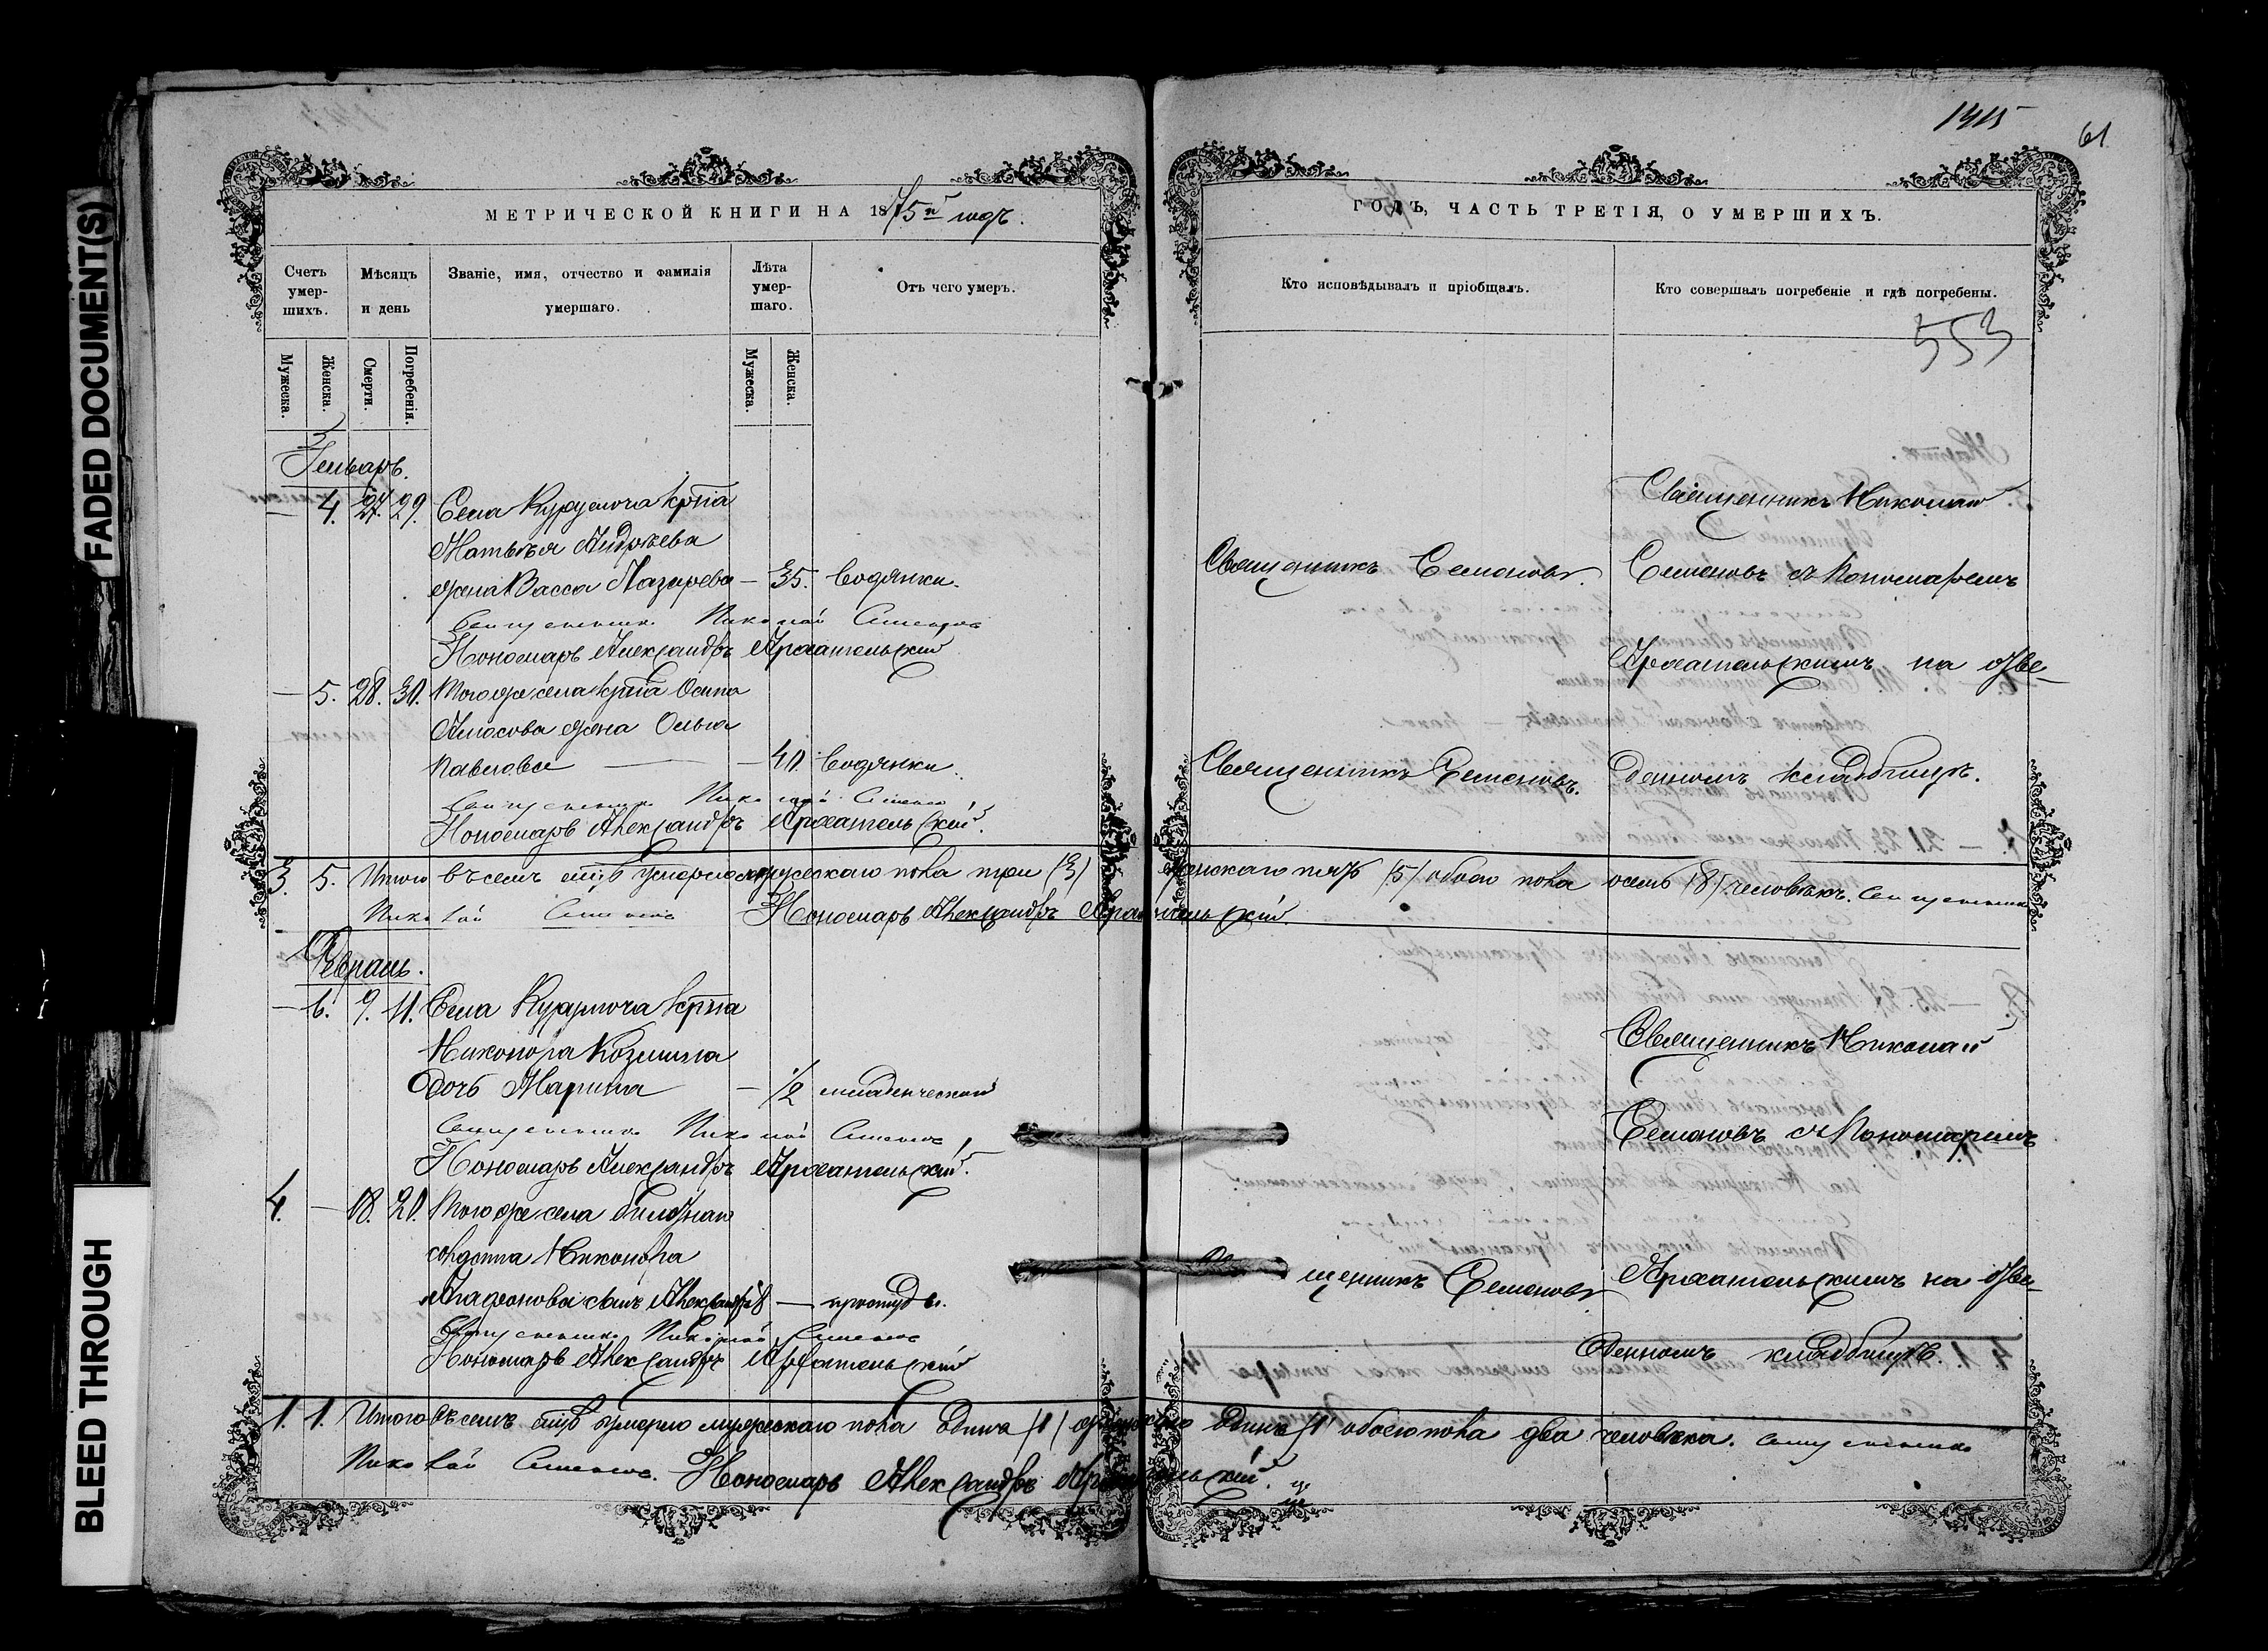 FADED DOCUMENT(S)
BLEED THROUGH
1415
61
МЕТРИЧЕСКОЙ КНИГИ НА 1875й годъ.
Счетъ умер-
шихъ.
Мѣсяцъ
и день
Званіе, имя, отчество и фамилія
умершаго.
Лѣта
умер-
шаго.
Отъ чего умеръ.
Мужеска.
Женска.
Смерти.
Погребенія.
Мужеска.
Женска.
Генварь.
— 4. 27. 29. Села
Матвѣя Андрѣева
жена Васса Лазарева — 35. водянки.
Николай
Пономарь Александръ Архангельскій
— 5. 28. 30. Тогоже села Осипа
жена Ольга
Павлова — 40. водянки.
Николай
Пономарь Александръ Архангельскій.
3. 5. Итого въ семъ умерло мужескаго пола три (3)
Николай Семеновъ Пономарь Александръ Архангельскій
Февраль.
— 6. 9. 11. Села
Никонора Козмина
дочь Марина — 1/2 младенческой
Николай Семеновъ
Пономарь Александръ Архангельскій.
4. — 18. 20. Тогоже села
солдата Никонора
сынъ Александръ 8 — простуды.
Николай Семеновъ
Пономарь Александръ Архангельскій
1. 1. Итого въ семъ умерло мужескаго пола одинъ (1)
Николай Семеновъ. Пономарь Александръ Архангельскій.
ГОДЪ, ЧАСТЬ ТРЕТІЯ, О УМЕРШИХЪ.
Кто исповѣдывалъ и пріобщалъ.
Кто совершалъ погребеніе и гдѣ погребены.
553
Священникъ Николай
Священникъ Семеновъ. Семеновъ съ Пономаремъ
Архангельскимъ на отве-
Священникъ Семеновъ. денномъ кладбищѣ.
женскаго пять (5) обоего пола осемь (8) человѣкъ. Священникъ
Священникъ Николай
Семеновъ съ Пономаремъ
щенникъ Семеновъ Архангельскимъ на отве-
денномъ кладбищѣ.
одинъ (1) обоего пола два человѣка. Священникъ